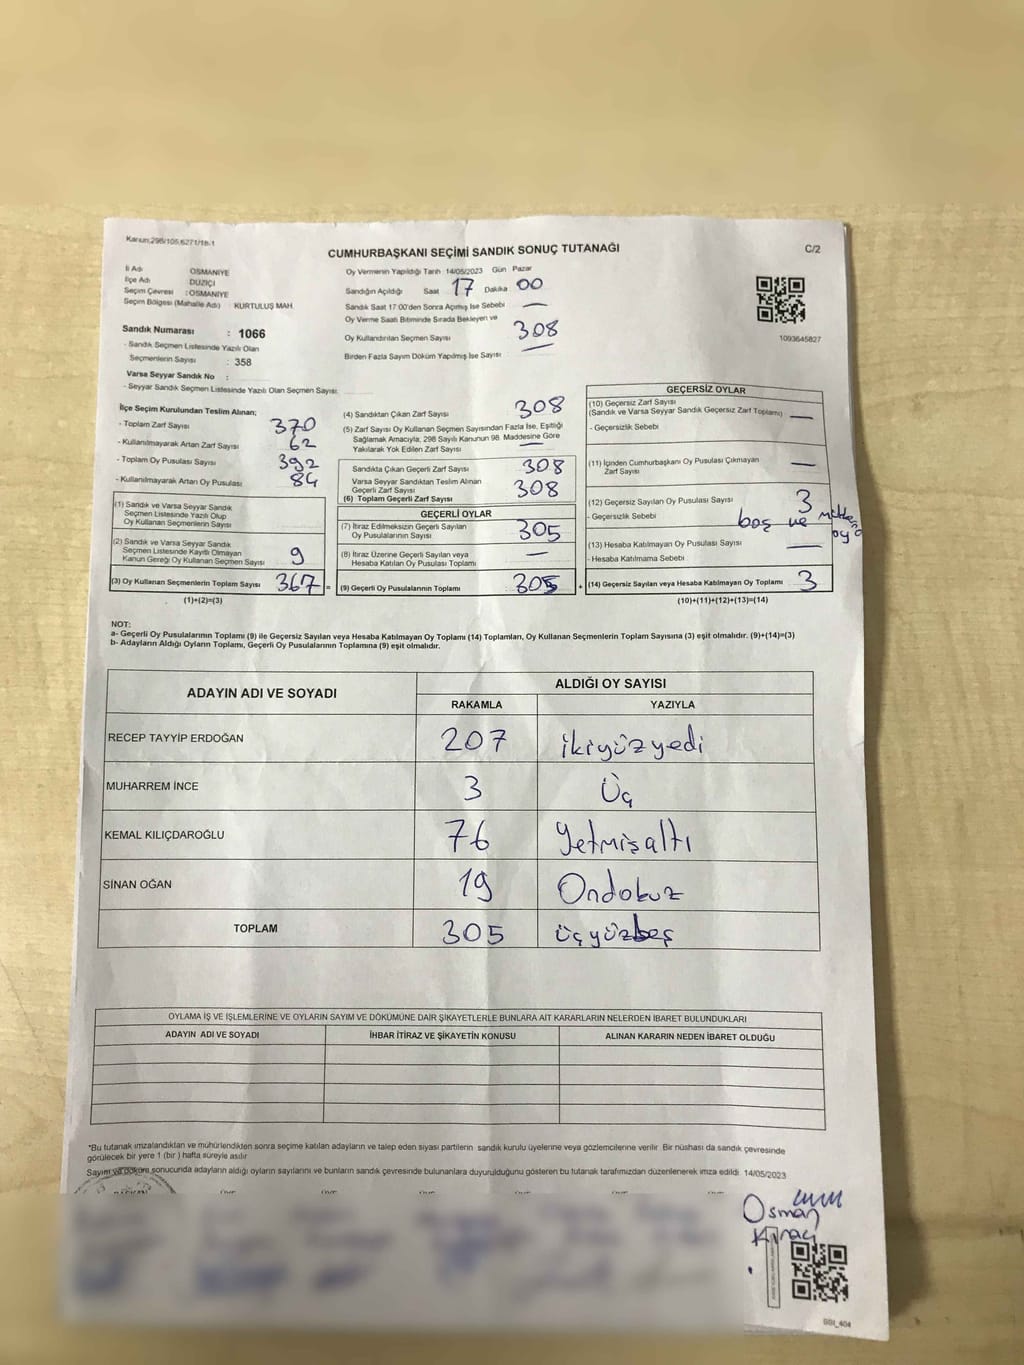 Kanun:298/105,6271/18-1
CUMHURBAŞKANI SEÇİMİ SANDIK SONUÇ TUTANAĞI
C/2
İli Adı OSMANİYE
İlçe Adı DÜZİÇİ
Seçim Çevresi : OSMANİYE
Seçim Bölgesi (Mahalle Adı) KURTULUŞ MAH.
Sandık Numarası : 1066
- Sandık Seçmen Listesinde Yazılı Olan
Seçmenlerin Sayısı : 358
Varsa Seyyar Sandık No :
- Seyyar Sandık Seçmen Listesinde Yazılı Olan Seçmen Sayısı:
Oy Vermenin Yapıldığı Tarih 14/05/2023 Gün Pazar
Sandığın Açıldığı Saat 17 Dakika 00
Sandık Saat 17:00'den Sonra Açımış İse Sebebi —
Oy Verme Saati Bitiminde Sırada Bekleyen ve
Oy Kullandırılan Seçmen Sayısı 308
Birden Fazla Sayım Döküm Yapılmış İse Sayısı —
1093645827
İlçe Seçim Kurulundan Teslim Alınan;
- Toplam Zarf Sayısı 370
- Kullanılmayarak Artan Zarf Sayısı 62
- Toplam Oy Pusulası Sayısı 392
- Kullanılmayarak Artan Oy Pusulası 84
(1) Sandık ve Varsa Seyyar Sandık
Seçmen Listesinde Yazılı Olup
Oy Kullanan Seçmenlerin Sayısı
(2) Sandık ve Varsa Seyyar Sandık
Seçmen Listesinde Kayıtlı Olmayan
Kanun Gereği Oy Kullanan Seçmen Sayısı 9
(3) Oy Kullanan Seçmenlerin Toplam Sayısı 367 =
(1)+(2)=(3)
(4) Sandıktan Çıkan Zarf Sayısı 308
(5) Zarf Sayısı Oy Kullanan Seçmen Sayısından Fazla İse, Eşitliği
Sağlamak Amacıyla, 298 Sayılı Kanunun 98. Maddesine Göre
Yakılarak Yok Edilen Zarf Sayısı —
Sandıkta Çıkan Geçerli Zarf Sayısı 308
Varsa Seyyar Sandıktan Teslim Alınan
Geçerli Zarf Sayısı 308
(6) Toplam Geçerli Zarf Sayısı
GEÇERLİ OYLAR
(7) İtiraz Edilmeksizin Geçerli Sayılan
Oy Pusulalarının Sayısı 305
(8) İtiraz Üzerine Geçerli Sayılan veya
Hesaba Katılan Oy Pusulası Toplamı —
(9) Geçerli Oy Pusulalarının Toplamı 305 +
GEÇERSİZ OYLAR
(10) Geçersiz Zarf Sayısı
(Sandık ve Varsa Seyyar Sandık Geçersiz Zarf Toplamı) —
- Geçersizlik Sebebi
(11) İçinden Cumhurbaşkanı Oy Pusulası Çıkmayan
Zarf Sayısı —
(12) Geçersiz Sayılan Oy Pusulası Sayısı 3
- Geçersizlik Sebebi boş ve oy
(13) Hesaba Katılmayan Oy Pusulası Sayısı —
- Hesaba Katılmama Sebebi
(14) Geçersiz Sayılan veya Hesaba Katılmayan Oy Toplamı 3
(10)+(11)+(12)+(13)=(14)
NOT:
a- Geçerli Oy Pusulalarının Toplamı (9) ile Geçersiz Sayılan veya Hesaba Katılmayan Oy Toplamı (14) Toplamları, Oy Kullanan Seçmenlerin Toplam Sayısına (3) eşit olmalıdır. (9)+(14)=(3)
b- Adayların Aldığı Oyların Toplamı, Geçerli Oy Pusulalarının Toplamına (9) eşit olmalıdır.
ADAYIN ADI VE SOYADI ALDIĞI OY SAYISI
RAKAMLA YAZIYLA
RECEP TAYYİP ERDOĞAN 207 ikiyüzyedi
MUHARREM İNCE 3 Üç
KEMAL KILIÇDAROĞLU 76 Yetmişaltı
SİNAN OĞAN 19 Ondokuz
TOPLAM 305 üçyüzbeş
OYLAMA İŞ VE İŞLEMLERİNE VE OYLARIN SAYIM VE DÖKÜMÜNE DAİR ŞİKAYETLERLE BUNLARA AİT KARARLARIN NELERDEN İBARET BULUNDUKLARI
ADAYIN ADI VE SOYADI İHBAR İTİRAZ VE ŞİKAYETİN KONUSU ALINAN KARARIN NEDEN İBARET OLDUĞU
*Bu tutanak imzalandıktan ve mühürlendikten sonra seçime katılan adayların ve talep eden siyasi partilerin sandık kurulu üyelerine veya gözlemcilerine verilir. Bir nüshası da sandık çevresinde
görülecek bir yere 1 (bir) hafta süreyle asılır.
Sayım ve döküm sonucunda adayların aldığı oyların sayılarını ve bunların sandık çevresinde bulunanlara duyurulduğunu gösteren bu tutanak tarafımızdan düzenlenerek imza edildi. 14/05/2023
BAŞKAN
Osman
Kıraç
SSI_404